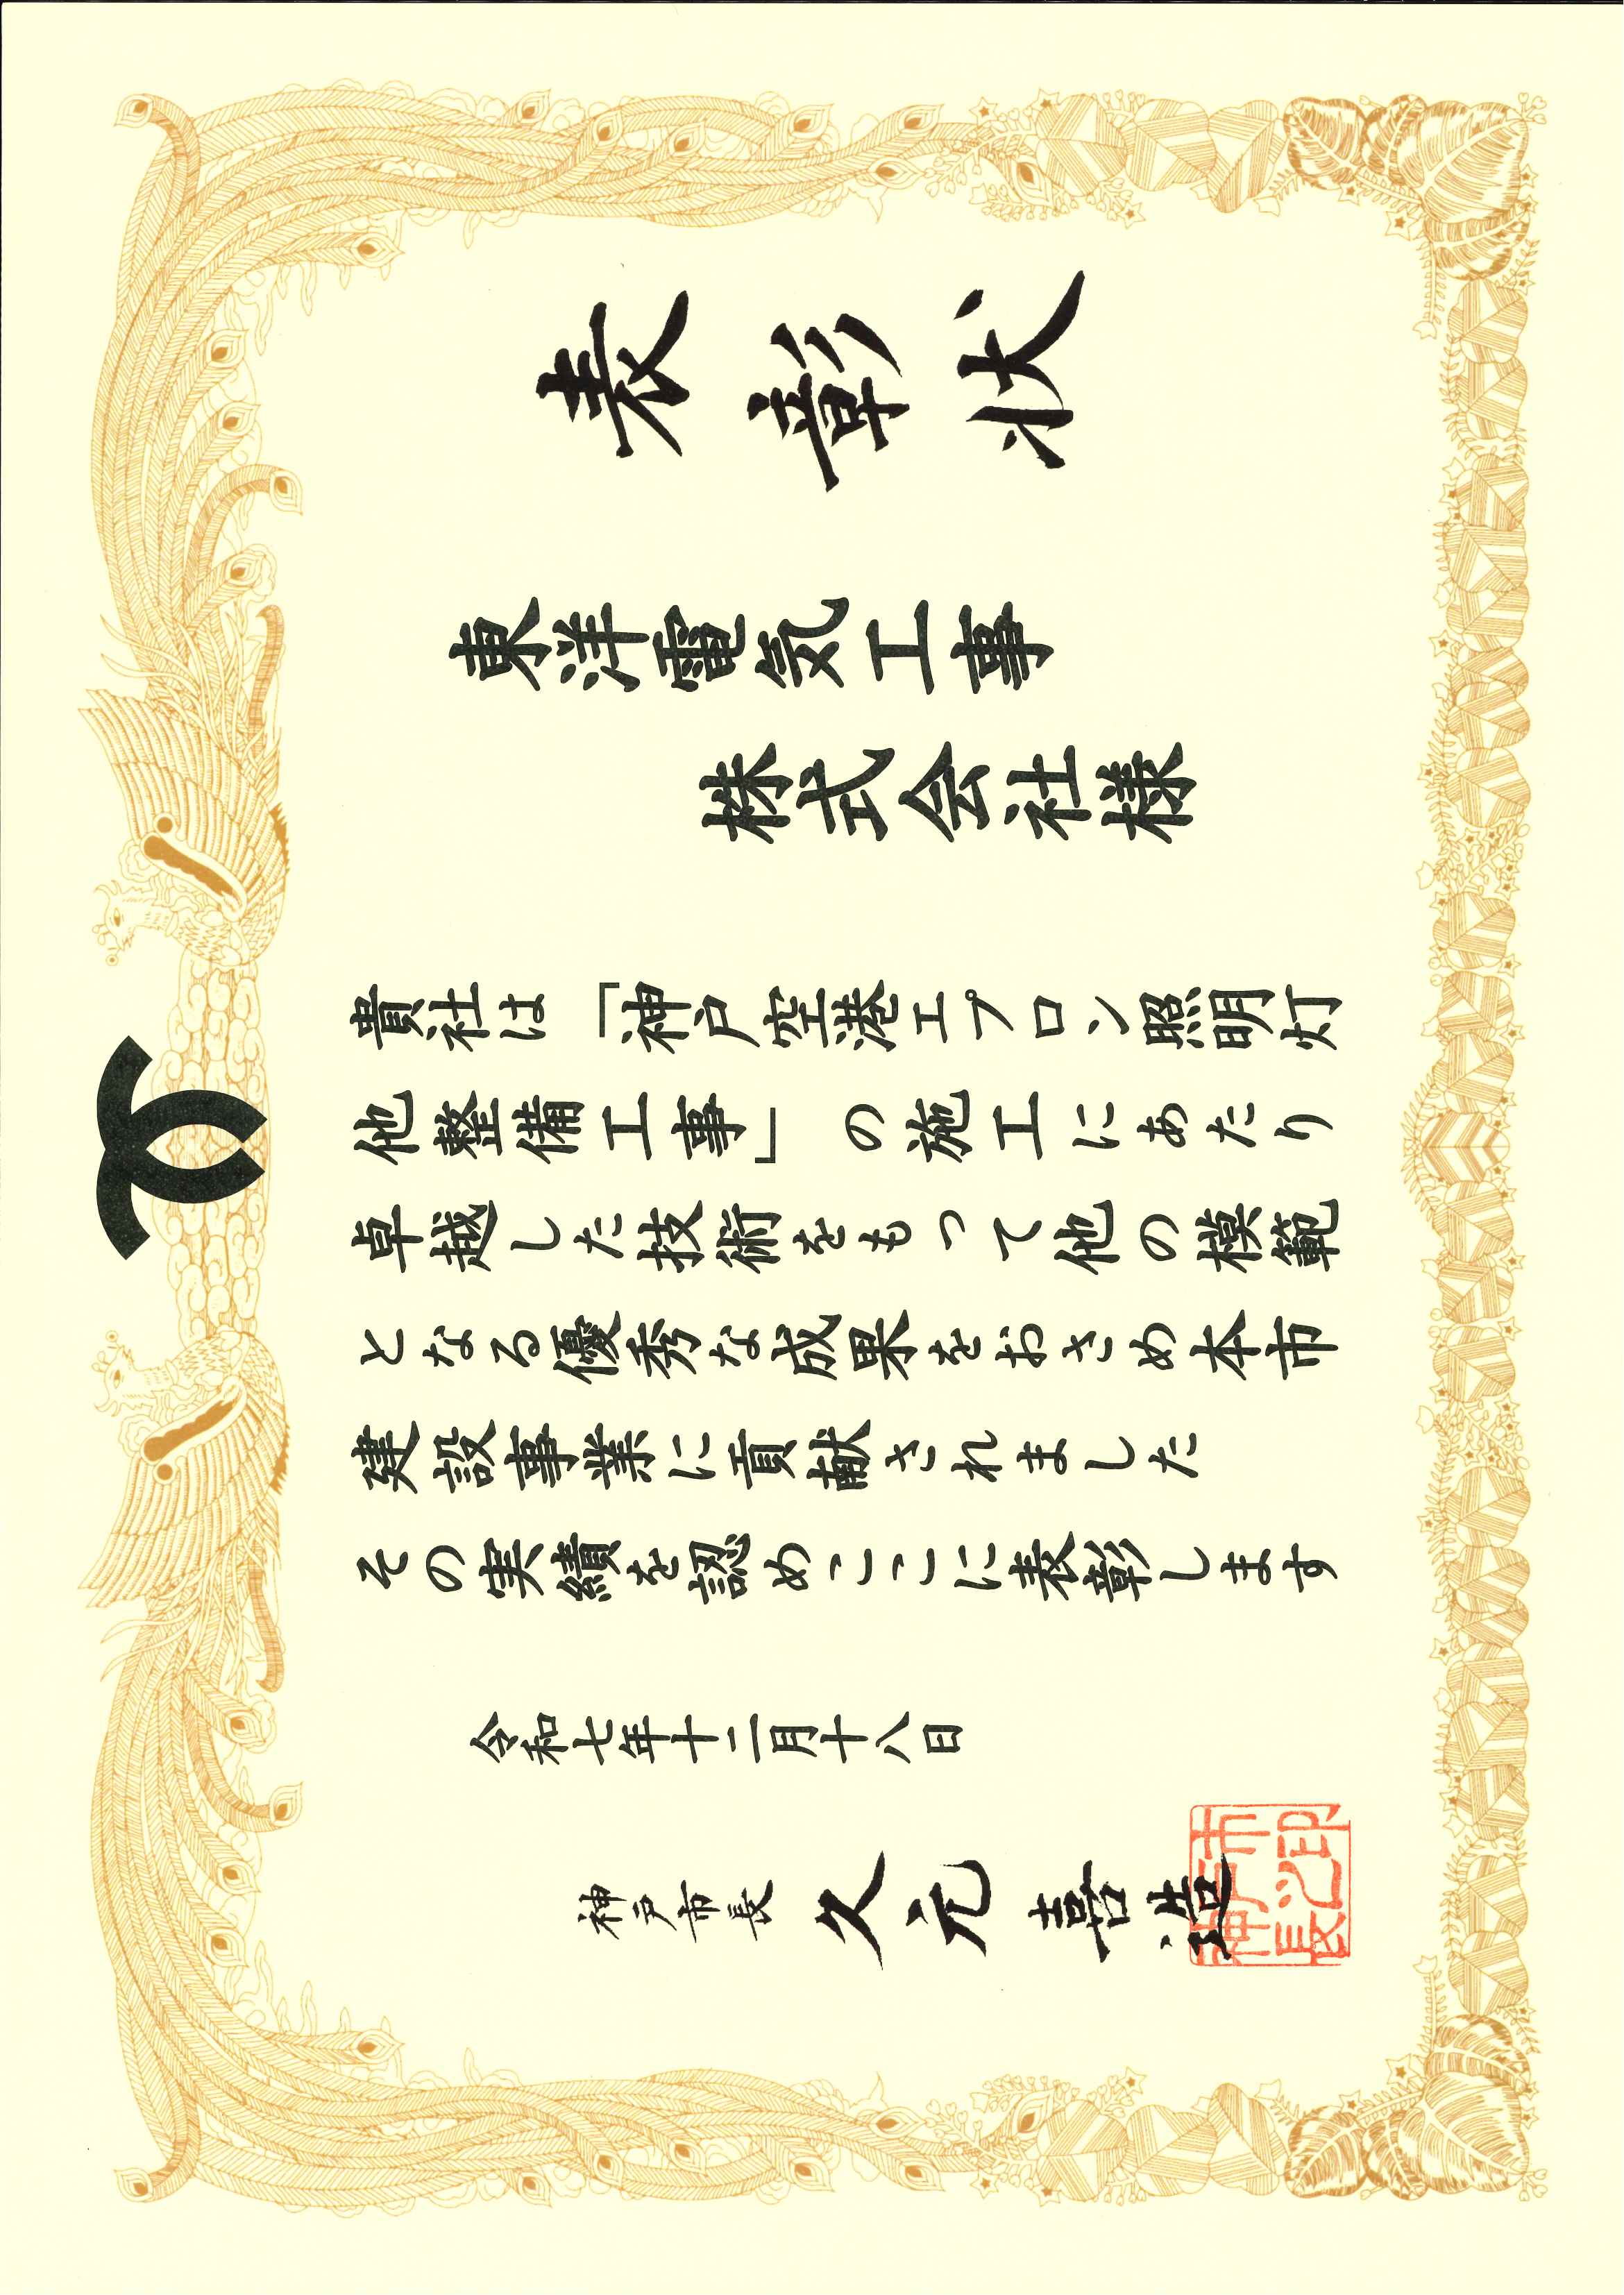 表彰状
東洋電気工事
株式会社様
貴社は「神戸空港エプロン照明灯
他整備工事」の施工にあたり
卓越した技術をもって他の模範
となる優秀な成果をおさめ本市
建設事業に貢献されました
その実績を認めここに表彰します
令和七年十二月十八日
神戸市長 久元喜造
神戸市長之印